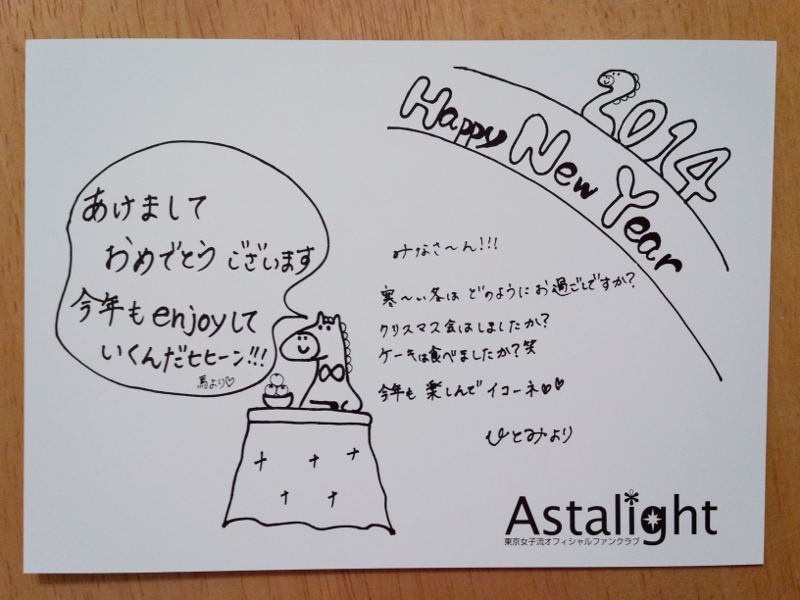 2014
Happy New Year
あけまして
おめでとうございます
今年もenjoyして
いくんだヒヒーン!!!
馬より♡
みなさ～ん!!!
寒～い冬はどのようにお過ごしですか?
クリスマス会はしましたか?
ケーキは食べましたか?笑
今年も楽しんでイコーネ♡♡
ひとみより
Astalight
東京女子流オフィシャルファンクラブ